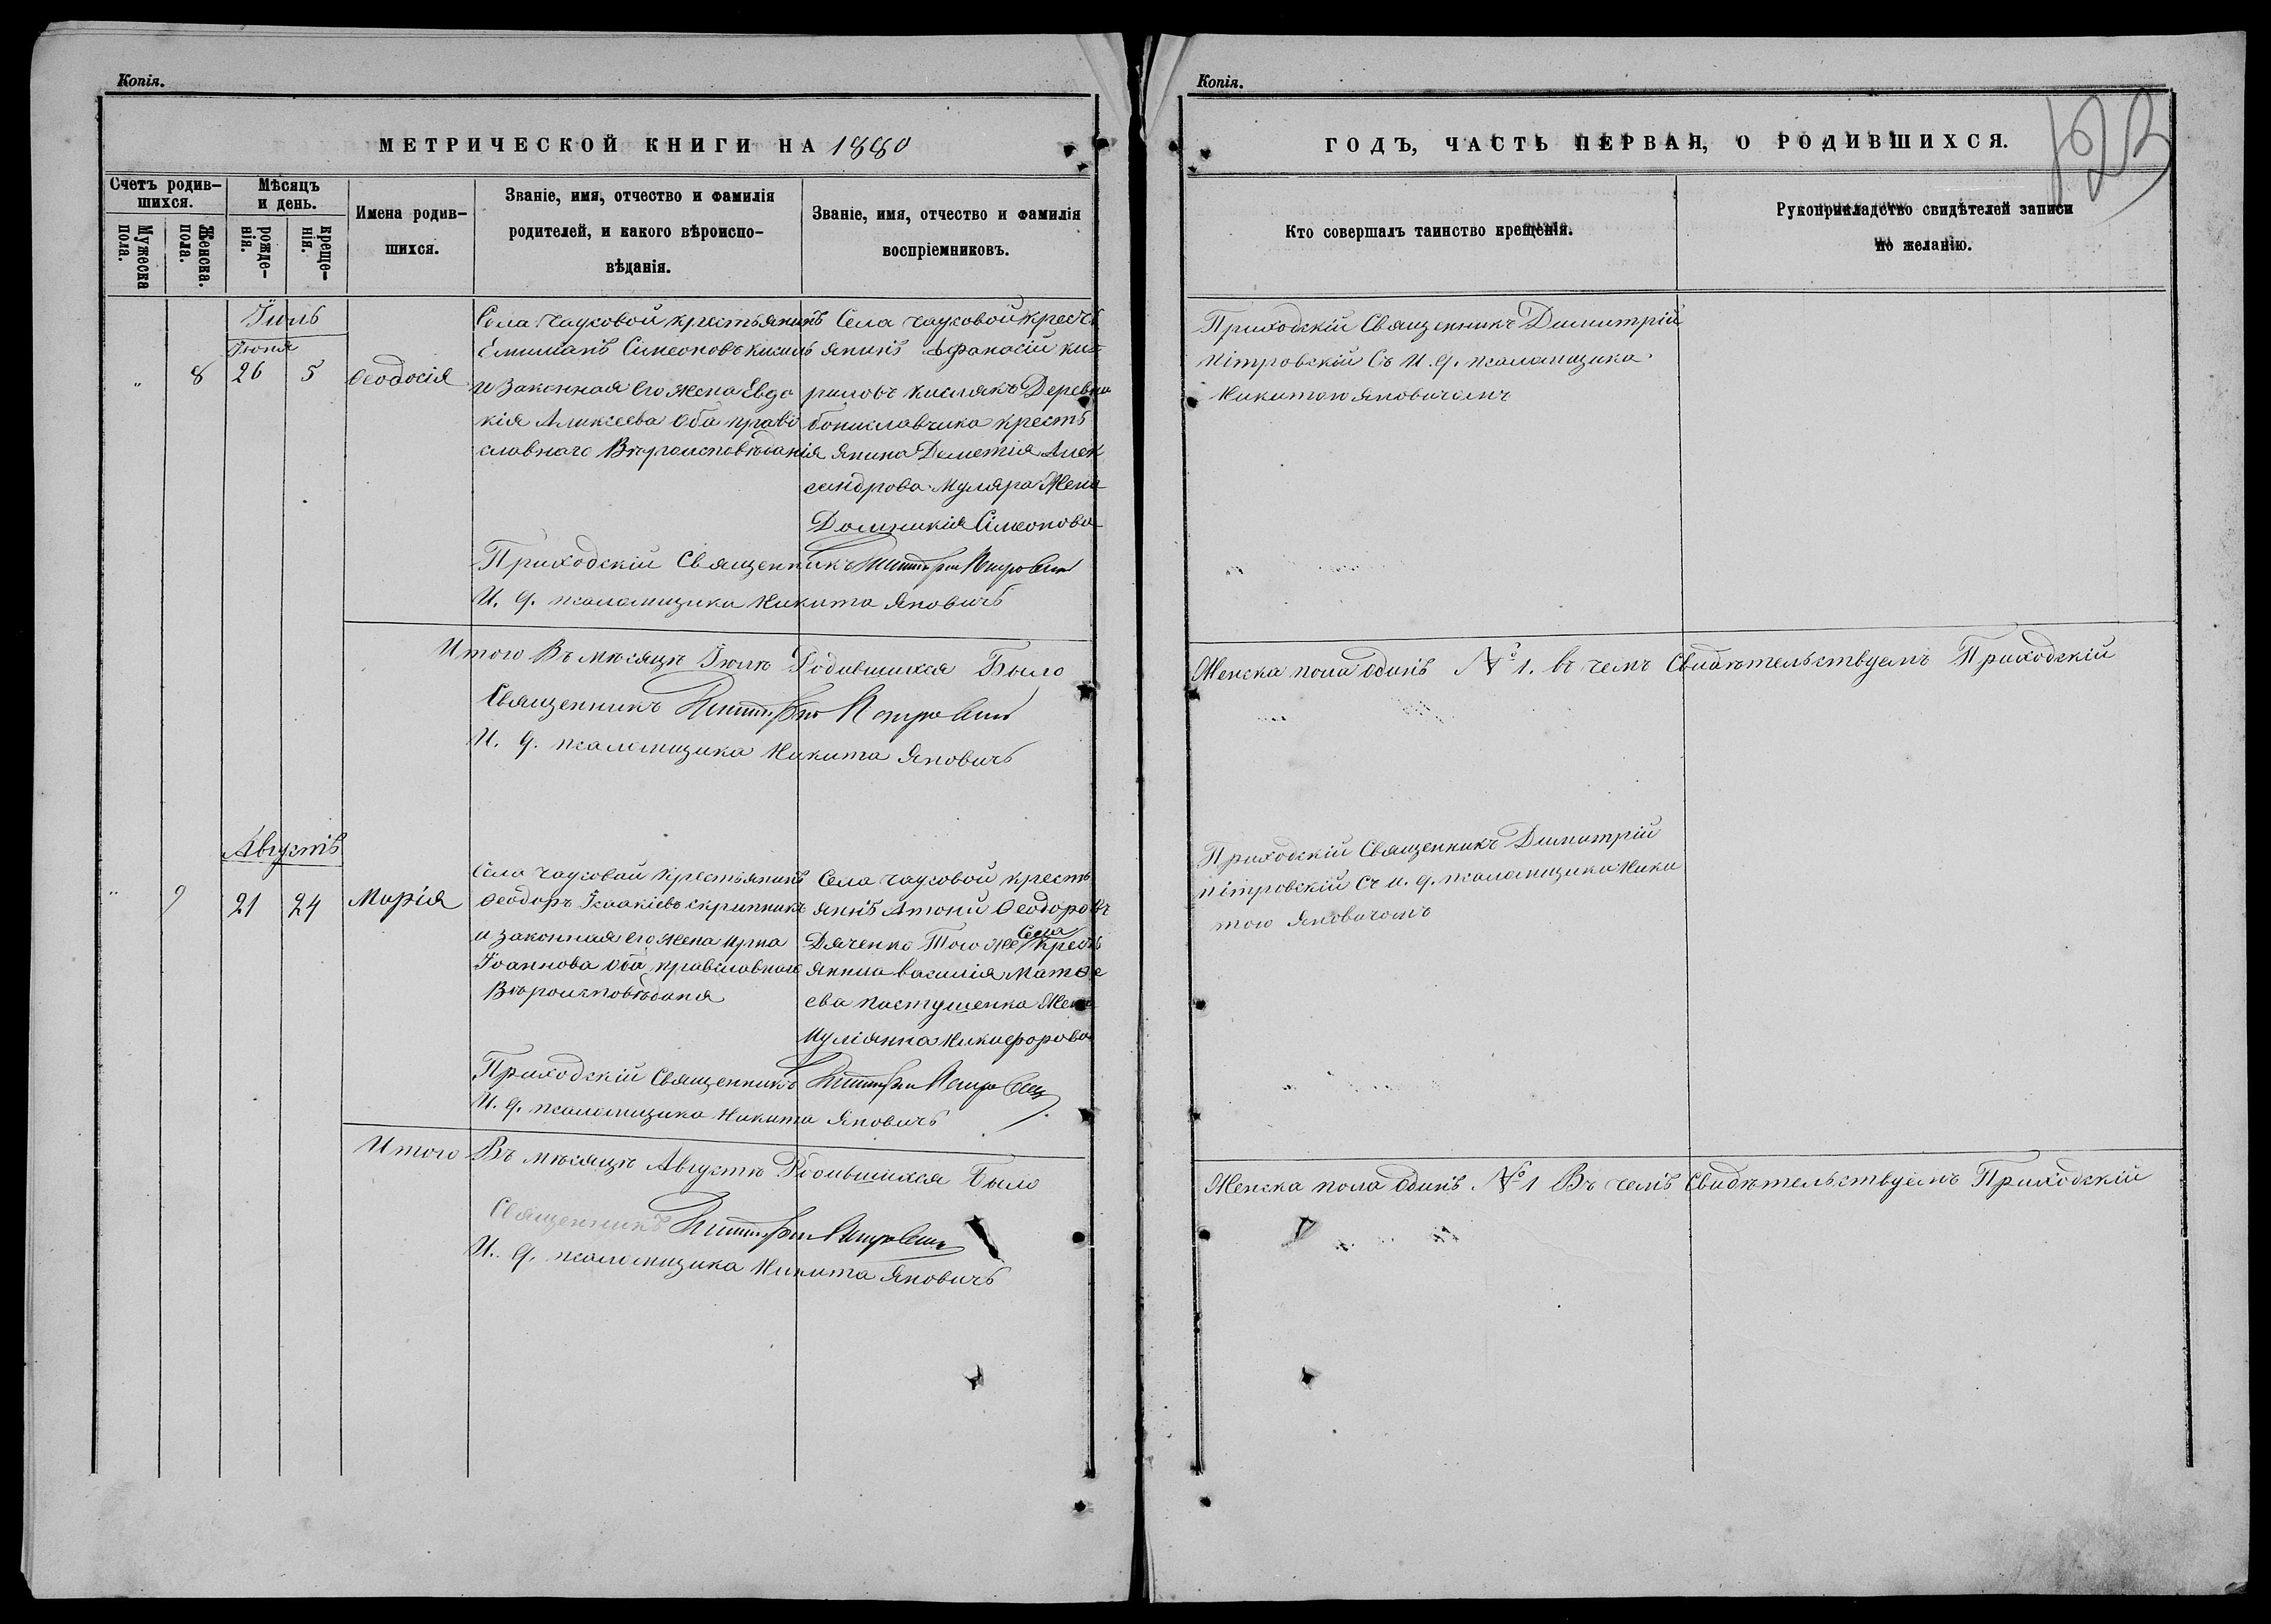 Копія.
МЕТРИЧЕСКОЙ КНИГИ НА 1880
Счетъ родив-
шихся.
Мужеска
пола.
Женска.
пола.
Мѣсяцъ
и день.
рожде-
нія.
креще-
нія.
Имена родив-
шихся.
Званіе, имя, отчество и фамилія
родителей, и какого вѣроиспо-
вѣданія.
Званіе, имя, отчество и фамилія
воспріемниковъ.
Іюль
Іюня
" 8 26 5 Ѳеодосія
Села Чаусовой крестьянинъ
Емиліанъ Симеоновъ
и законная его жена Евдо
кія Алексеева оба право
славнаго Вѣроисповѣданія
Села Чаусовой кресть
янинъ Афанасій Ки-
риловъ Кислякъ Деревни
кресть
янина Дементія Алек
сандрова Муляра Жена
Домникія Сімеонова
Приходскій Священникъ Димитрій Петровскій
И. д. псаломщика Никита Яновичъ
Итого Въ мѣсяцѣ Іюлѣ Родившихся Было
Священникъ Димитрій Петровскій
И. д. псаломщика Никита Яновичъ
Августъ
" 9 21 24 Марія
Села Чаусовой Крестьянинъ
Ѳеодоръ Ісаакіевъ Скрипникъ
и законная его жена Ирина
Іоаннова оба православнаго
Вѣроисповѣданія
Села Чаусовой кресть
янинъ Антоній Ѳеодоровъ
Дяченко Того же Села Кресть
янина Василія Матѳе
ева Пастушенка Жена
Иуліянна Никифорова
Приходскій Священникъ Димитрій Петровскій
И. д. псаломщика Никита Яновичъ
Итого Въ мѣсяцѣ Августѣ Родившихся Было
Священникъ Димитрій Петровскій
И. д. псаломщика Никита Яновичъ
Копія.
ГОДЪ, ЧАСТЬ ПЕРВАЯ, О РОДИВШИХСЯ.
Кто совершалъ таинство крещенія.
Рукоприкладство свидѣтелей записи
по желанію.
Приходскій Священникъ Димитрій
Пітровскій Съ И. д. псаломщика
Никитою Яновичомъ
Женска пола Одинъ № 1. въ чемъ Свидѣтельствуемъ Приходскій
Приходскій Священникъ Димитрій
Пітровскій Съ и. д. псаломщика Ники
тою Яновичомъ
Женска пола Одинъ № 1 Въ чемъ Свидѣтельствуемъ Приходскій